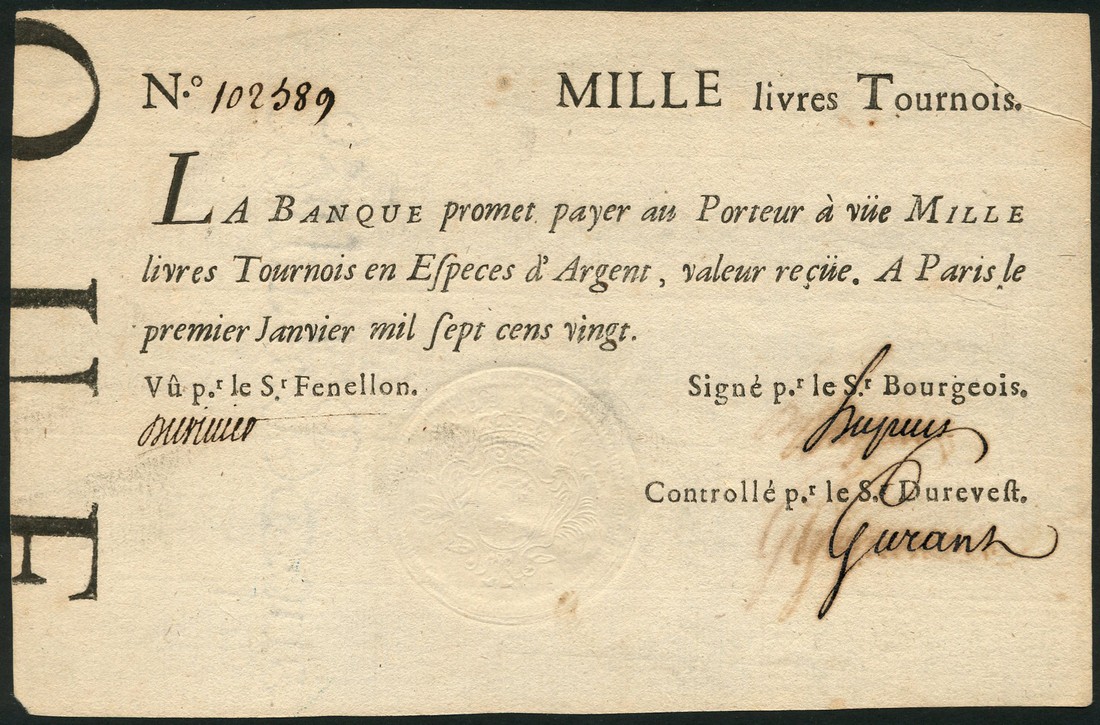 N.º 102589 MILLE livres Tournois.
LA BANQUE promet payer au Porteur à vüe MILLE
livres Tournois en Eſpeces d'Argent, valeur reçüe. A Paris le
premier Janvier mil ſept cens vingt.
Vû p.r le S.r Fenellon.
Signé p.r le S.r Bourgeois.
Controllé p.r le S.r Dureveſt.
Gurant